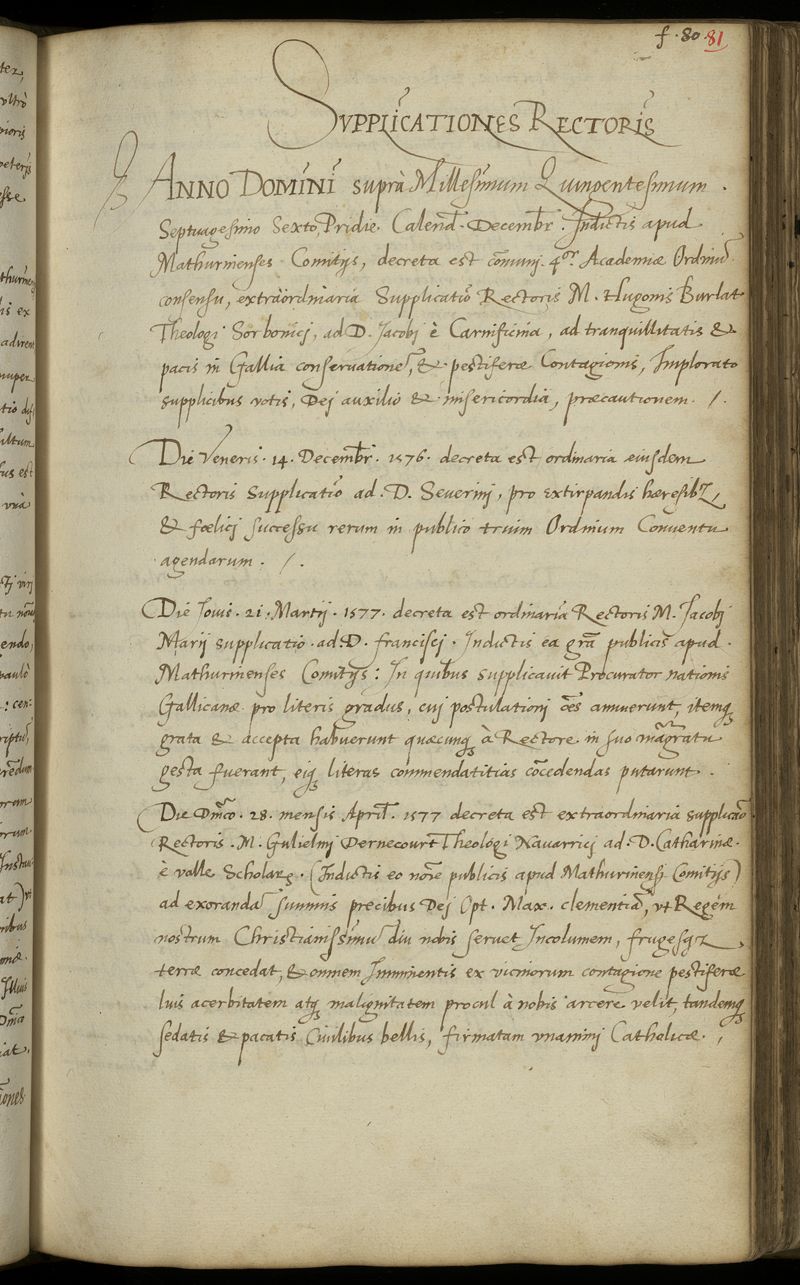 f. 80. 81
SVPPLICATIONES RECTORIS
ANNO DOMINI suprà Millesimum Quingentesimum .
Septuagesimo Sexto, Pridie Calend. Decembr. Indictis apud
Mathurinenses Comitijs, decreta est cõmuni 4or. Academiæ Ordinũ
consensu, extraordinaria Supplicatio Rectoris M. Hugonis Burlat
Theologi Sorbonici, ad D. Jacobi è Carnificina, ad tranquillitatis &
pacis in Gallia conseruationẽ, & pestiferæ Contagionis, Implorato
supplicibus votis, Dei auxilio & misericordia, præcautionem . /.
Die Veneris . 14 . Decembr . 1576 . decreta est ordinaria eiusdem
Rectoris Supplicatio ad . D. Seuerini, pro extirpandis hæresibz,
& fœlici successu rerum in publico trium Ordinum Conuentu
agendarum . /.
Die Iouis . 21 . Martij . 1577 . decreta est ordinaria Rectoris M. Jacobi
Marij supplicatio . ad D. francisci . Indictis ea grã publicis apud .
Mathurinenses Comitijs : In quibus supplicauit Procurator nationis
Gallicanæ pro literis gradus, cui postulationi õẽs annuerunt, itemq
grata & accepta habuerunt quæcunq à Rectore in suo mãgratu
gesta fuerant, eiq literas commendatitias cõcedendas putarunt .
Die Dnico . 28 . mensis April . 1577 decreta est extraordinaria supplicão
Rectoris . M. Gulielmi Dernecourt Theologi Nauarrici ad . D. Catharinæ .
è valle Scholarz . (Indictis eo noĩe publicis apud Mathurinenses Comitijs)
ad exorandã summis precibus Dei Opt . Max . clementiã, vt Regem
nostrum Christianissimũ diu nobis seruet Incolumem, frugesqz,
terræ concedat, & omnem Imminentis ex vicinorum contagione pestiferæ
luis acerbitatem atq malignitatem procul à nobis arcere velit, tandemq
sedatis & pacatis Ciuilibus bellis, firmatam vnanimi Catholicæ . ,